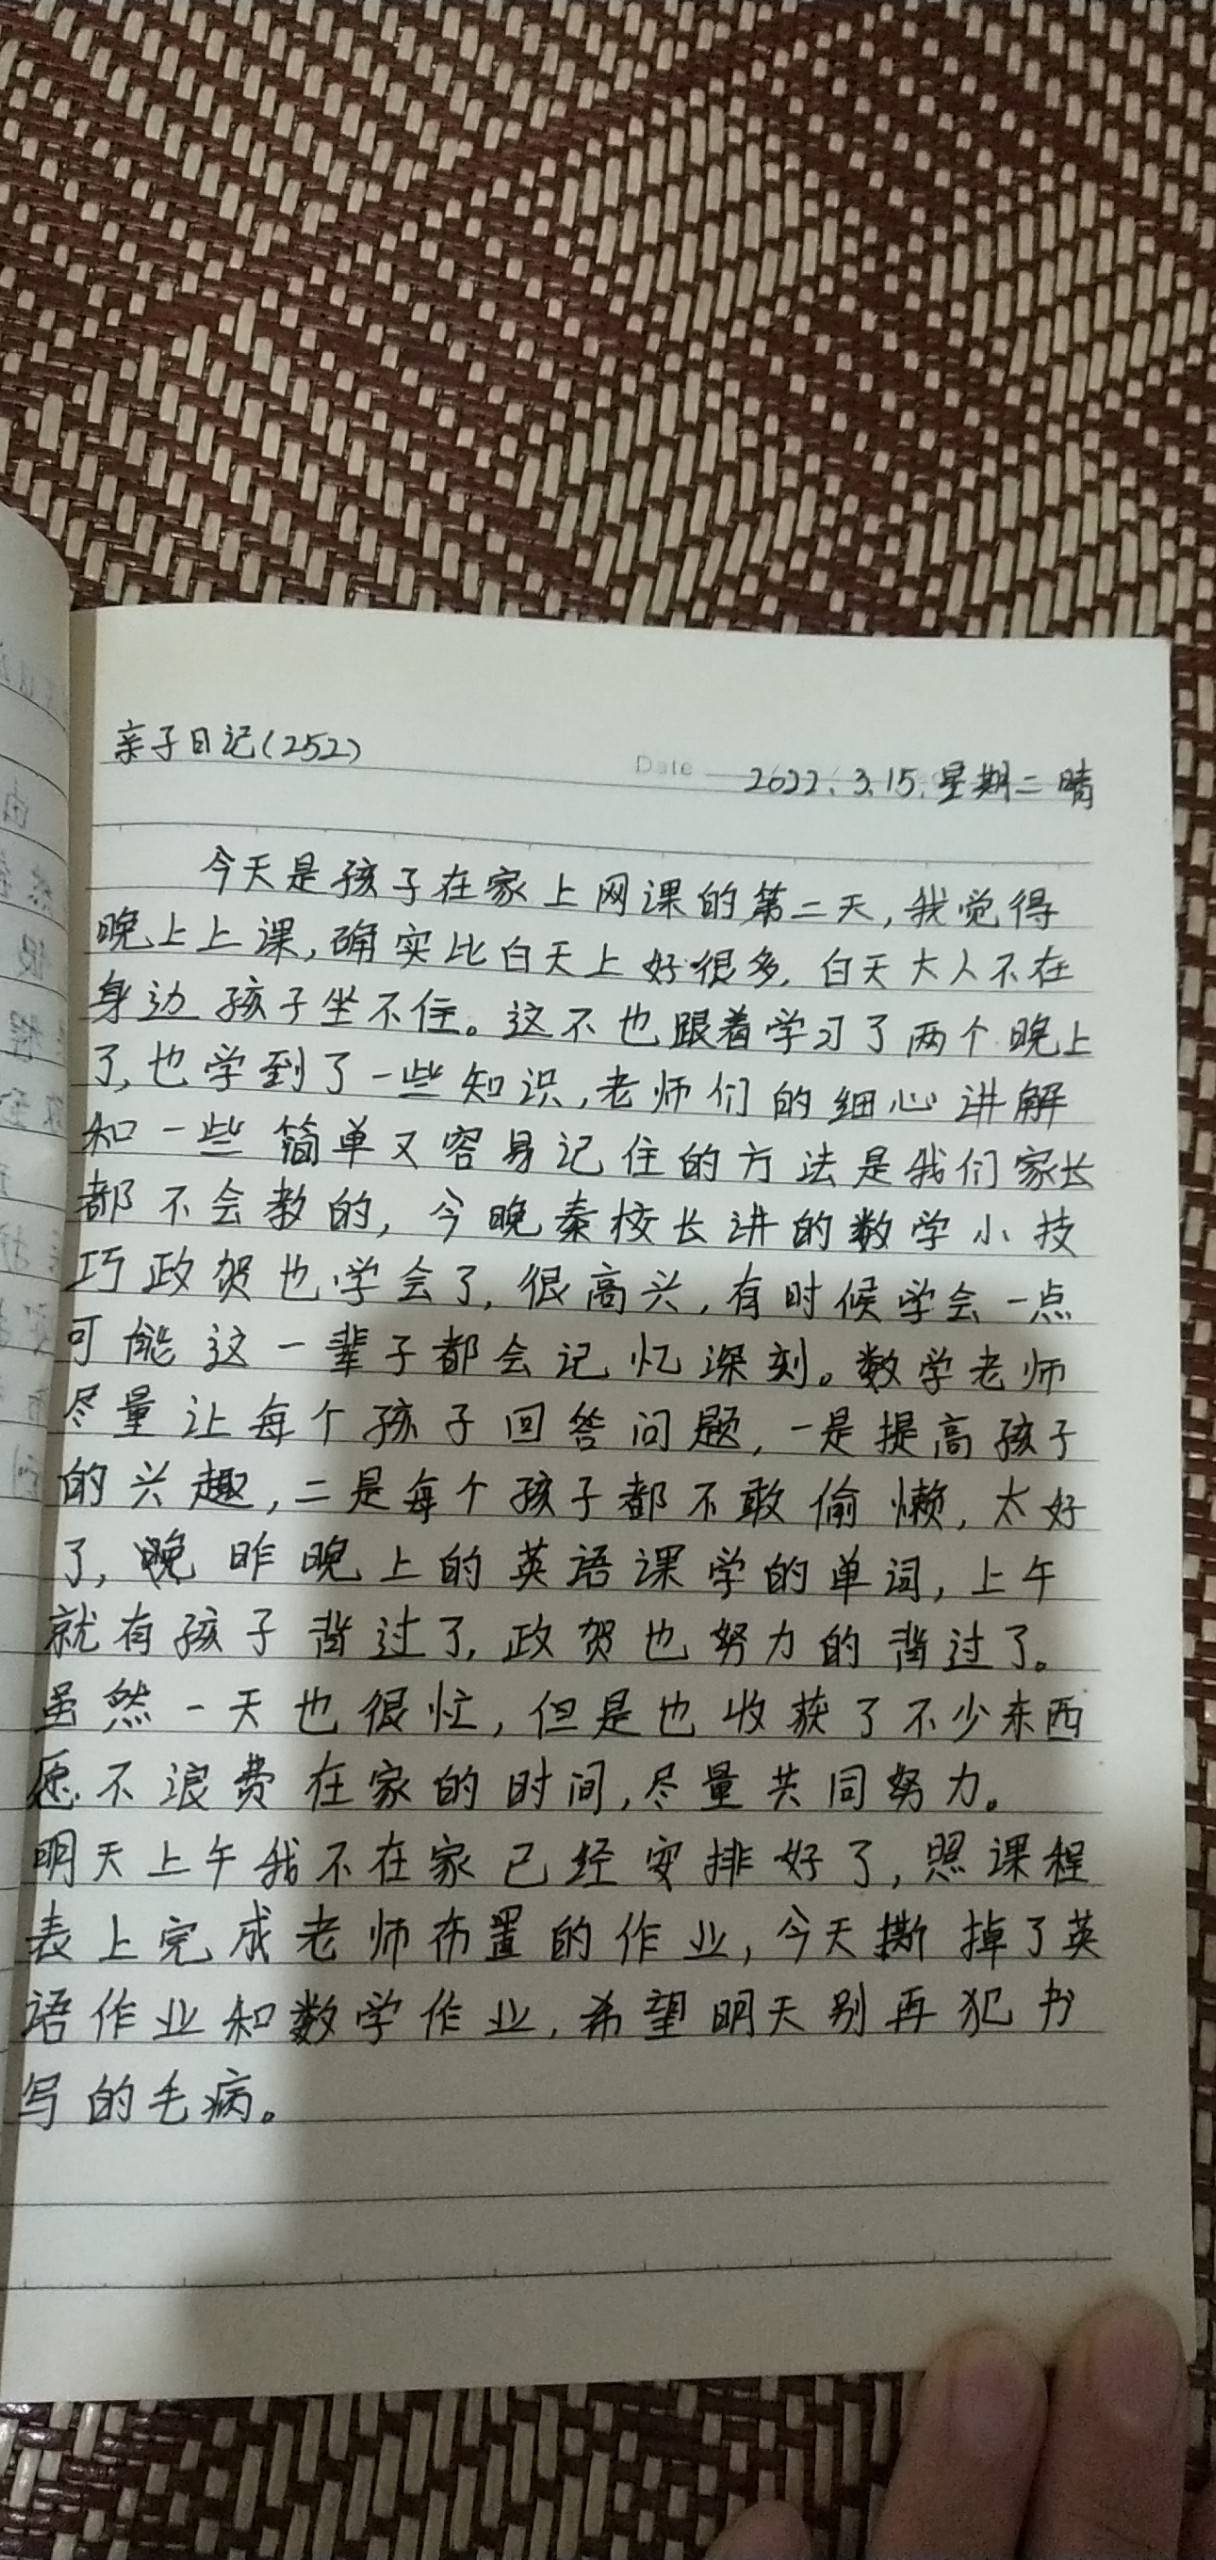 亲子日记(252)
Date 2022.3.15.星期二 晴
今天是孩子在家上网课的第二天,我觉得
晚上上课,确实比白天上好很多,白天大人不在
身边孩子坐不住。这不也跟着学习了两个晚上
了,也学到了一些知识,老师们的细心讲解
和一些简单又容易记住的方法是我们家长
都不会教的,今晚秦校长讲的数学小技
巧政贺也学会了,很高兴,有时候学会一点
可能这一辈子都会记忆深刻。数学老师
尽量让每个孩子回答问题,一是提高孩子
的兴趣,二是每个孩子都不敢偷懒,太好
了,昨晚上的英语课学的单词,上午
就有孩子背过了,政贺也努力的背过了。
虽然一天也很忙,但是也收获了不少东西
愿不浪费在家的时间,尽量共同努力。
明天上午我不在家已经安排好了,照课程
表上完成老师布置的作业,今天撕掉了英
语作业和数学作业,希望明天别再犯书
写的毛病。